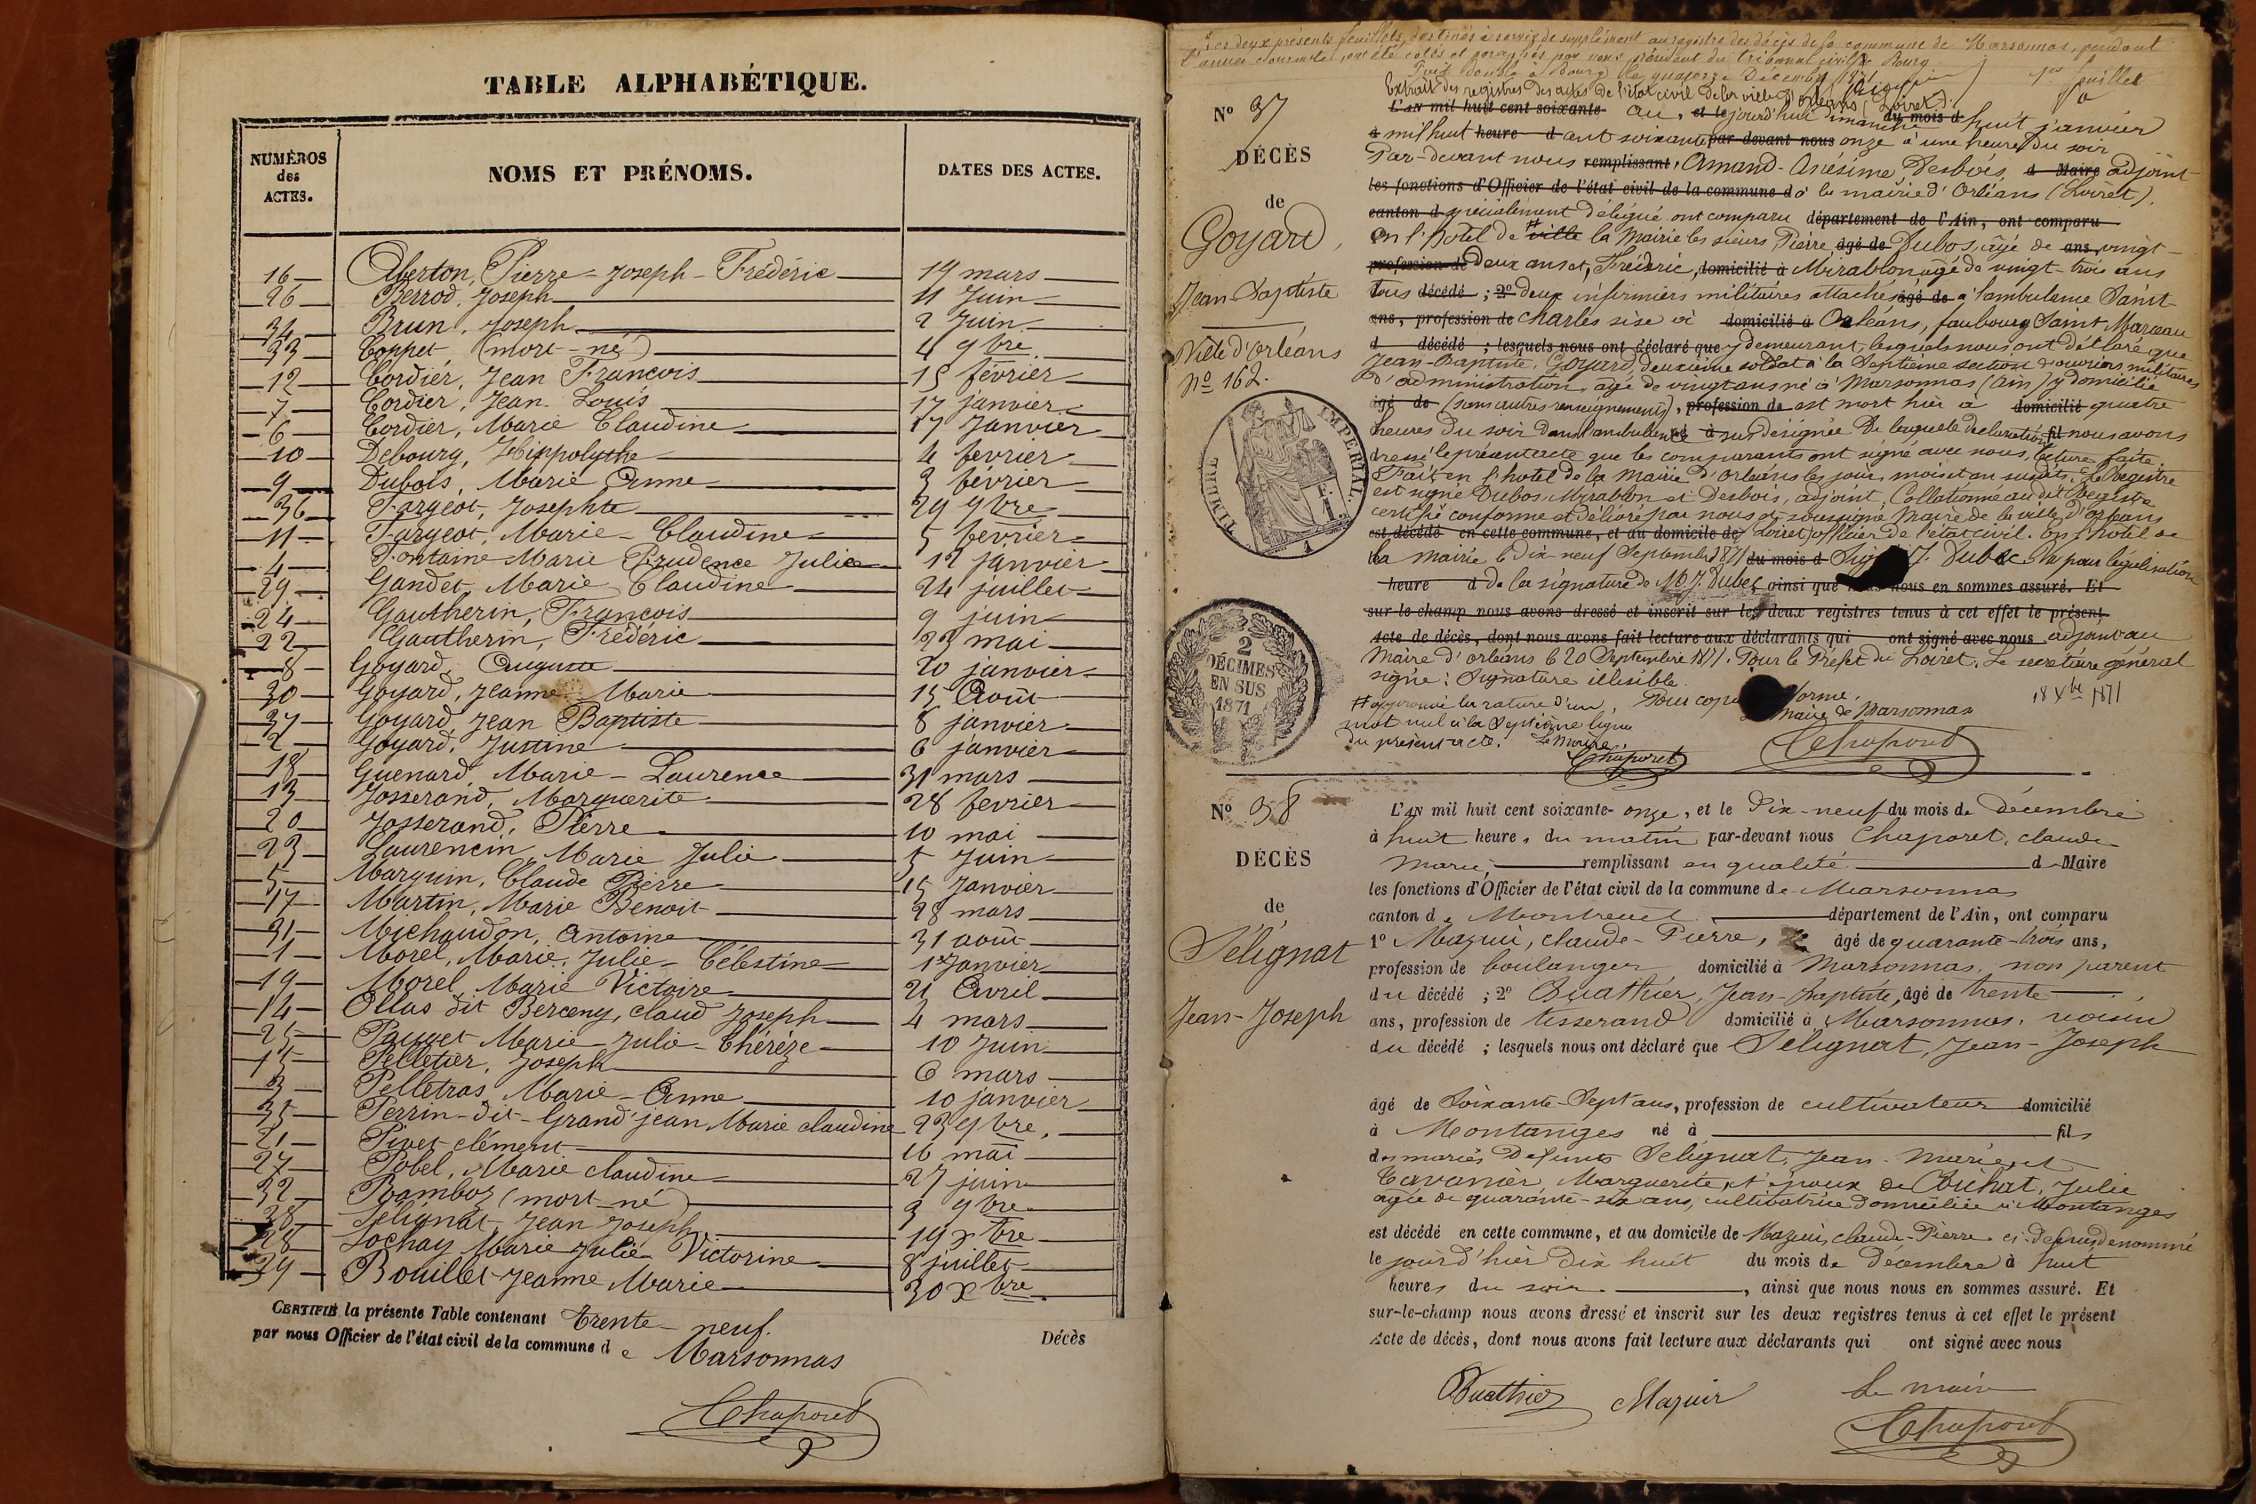 TABLE ALPHABÉTIQUE.
NUMÉROS des ACTES. NOMS ET PRÉNOMS. DATES DES ACTES.
16 Aberton, Pierre-Joseph-Frédéric 19 mars
26 Berrod, Joseph 11 Juin
34 Brun, Joseph 2 Juin
33 Coppet, (mort-né) 4 9bre
12 Cordier, Jean François 15 février
7 Cordier, Jean Louis 17 janvier
6 Cordier, Marie Claudine 17 Janvier
10 Debourg, Hippolythe 4 fevrier
9 Dubois, Marie Anne 3 février
36 Fargeot, Josephte 29 9bre
11 Fargeot, Marie-Claudine 5 fevrier
4 Fontaine Marie Prudence Julie 12 janvier
29 Gandet, Marie Claudine 24 juillet
24 Gautherin, François 9 juin
22 Gautherin, Frédéric 23 mai
8 Goyard, Auguste 20 janvier
30 Goyard, Jeanne Marie 15 Août
37 Goyard, Jean Baptiste 8 janvier
2 Goyard, Justine 6 janvier
18 Guenard, Marie-Laurence 31 mars
13 Josserand, Marguerite 28 fevrier
20 Josserand, Pierre 10 mai
23 Laurencin, Marie Julie 5 Juin
5 Marguin, Claude Pierre 15 Janvier
17 Martin, Marie Benoit 28 mars
31 Michaudon, Antoine 31 août
1 Morel, Marie Julie-Célestine 1er Janvier
19 Morel, Marie Victoire 21 Avril
14 Ollas dit Berceny, Claud Joseph 4 mars
25 Pauget Marie-Julie-Thérèze 10 Juin
15 Pelletier, Joseph 6 mars
3 Pelletras, Marie-Anne 10 janvier
35 Perrin-dit-Grand'jean Marie claudine 23 9bre.
21 Pivet clément 16 mai
27 Pobel, Marie claudine 27 juin
32 Ramboz (mort-né) 3 9bre
38 Sélignat, Jean Joseph 19 Xbre
28 Sochay Marie Julie Victorine 8 juillet
39 Bouillet Jeanne Marie 30 Xbre
CERTIFIÉ la présente Table contenant trente-neuf. Décès
par nous Officier de l'état civil de la commune de Marsonnas
Chaporet
Les deux présents feuillets, destinés à servir de supplément au registre des décès de la commune de Marsonnas, pendant
l'année courante, ont été cotés et paraphés par nous président du tribunal civil de Bourg.
Fait double à Bourg le quatorze Décembre 1871
1er feuillet
Extrait des registres des actes de l'état civil de la ville d'Orléans (Loiret).
N° 37
DÉCÈS
de
Goyard,
Jean-Baptiste
Ville d'Orléans
N° 162.
TIMBRE IMPÉRIAL
2 DÉCIMES EN SUS 1871
L'AN mil huit cent soixante au, et le jourd'hui dimanche du mois d huit janvier
mil huit heure d cent soixante par devant nous onze à une heure du soir
Par-devant nous remplissant, Amand-Onésime Desbois, d Maire adjoint
les fonctions d'Officier de l'état civil de la commune d à la mairie d'Orléans (Loiret),
canton d spécialement délégué ont comparu département de l'Ain, ont comparu
En l'hotel de ville la Mairie les sieurs Pierre âgé de Dubos, âgé de ans, vingt-
profession de deux ans et, Frédéric, domicilié à Mirablon agé de vingt-trois ans
tous décédé ; 2° deux infirmiers militaires attachés âgé de à l'ambulance Saint-
ans, profession de Charles sise à domicilié à Orléans, faubourg Saint Marceau
d décédé ; lesquels nous ont déclaré que y demeurant, lesquels nous ont déclaré que
Jean-Baptiste, Goyard, deuxième soldat à la Septième section d'ouvriers militaires
d'administration, âgé de vingt ans né à Marsonnas (Ain) y domicilié
âgé de (sans autres renseignements), profession de est mort hier à domicilié quatre
heures du soir dans l'ambulance à sus désignée De laquelle déclaration fil nous avons
dressé le présent acte que les comparants ont signé avec nous, lecture faite.
Fait en l'hotel de la Mairie d'Orléans les jour, mois et an susdits. Le Registre
est signé Dubos, Mirablon et Desbois, adjoint. Collationné au dit Registre
certifié conforme et délivré par nous soussigné Maire de la ville d'Orléans
est décédé en cette commune, et au domicile de (Loiret) officier de l'état civil. En l'hotel de
la Mairie le Dix neuf Septembre 1871 du mois d Signé J. Dubec. Vu pour légalisation
heure d De la signature de M. J. Dubec, ainsi que nous nous en sommes assuré. Et
sur-le-champ nous avons dressé et inscrit sur les deux registres tenus à cet effet le présent
Acte de décès, dont nous avons fait lecture aux déclarants qui ont signé avec nous adjoint au
Maire d'Orléans le 20 Septembre 1871. Pour le Préfet du Loiret. Le secretaire général
signé : Signature illisible.
# approuvé la rature d'un
mot nul à la Septième ligne
du présent acte. Le Maire,
Chaporet
Pour copie conforme.
Maire de Marsonnas
18 Xbre 1871
Chaporet
N° 38
DÉCÈS
de
Sélignat
Jean-Joseph
L'AN mil huit cent soixante-onze, et le Dix-neuf du mois de décembre
à huit heures du matin par-devant nous Chaporet, claude
Marie, remplissant en qualité d Maire
les fonctions d'Officier de l'état civil de la commune de Marsonnas
canton de Montrevel département de l'Ain, ont comparu
1° Mazuir, claude-Pierre, âgé de quarante-trois ans,
profession de boulanger domicilié à Marsonnas, non parent
du décédé ; 2° Buathier, Jean-Baptiste, âgé de trente
ans, profession de tisserand domicilié à Marsonnas, voisin
du décédé ; lesquels nous ont déclaré que Sélignat, Jean-Joseph
âgé de Soixante-Sept ans, profession de cultivateur domicilié
à Montanges né à fils
des mariés Defunts Sélignat, Jean-Marie et
Tavanier, Marguerite, et époux de Buchat, Julie
agée de quarante-six ans, cultivatrice domiciliée à Montanges
est décédé en cette commune, et au domicile de Mazuir, claude-Pierre ci-dessus dénommé
le jourd'hier dix huit du mois de Décembre à huit
heures du soir, ainsi que nous nous en sommes assuré. Et
sur-le-champ nous avons dressé et inscrit sur les deux registres tenus à cet effet le présent
Acte de décès, dont nous avons fait lecture aux déclarants qui ont signé avec nous
Buathier Mazuir Le maire
Chaporet